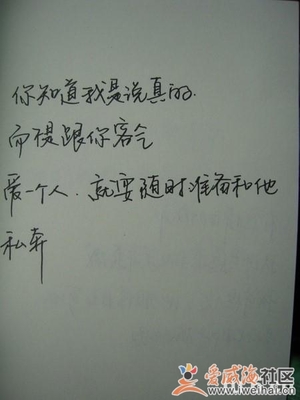 你知道我是说真的.
而提跟你客气
爱一个人.就要随时准备和他
私奔
爱威海社区
www.iweihai.cn